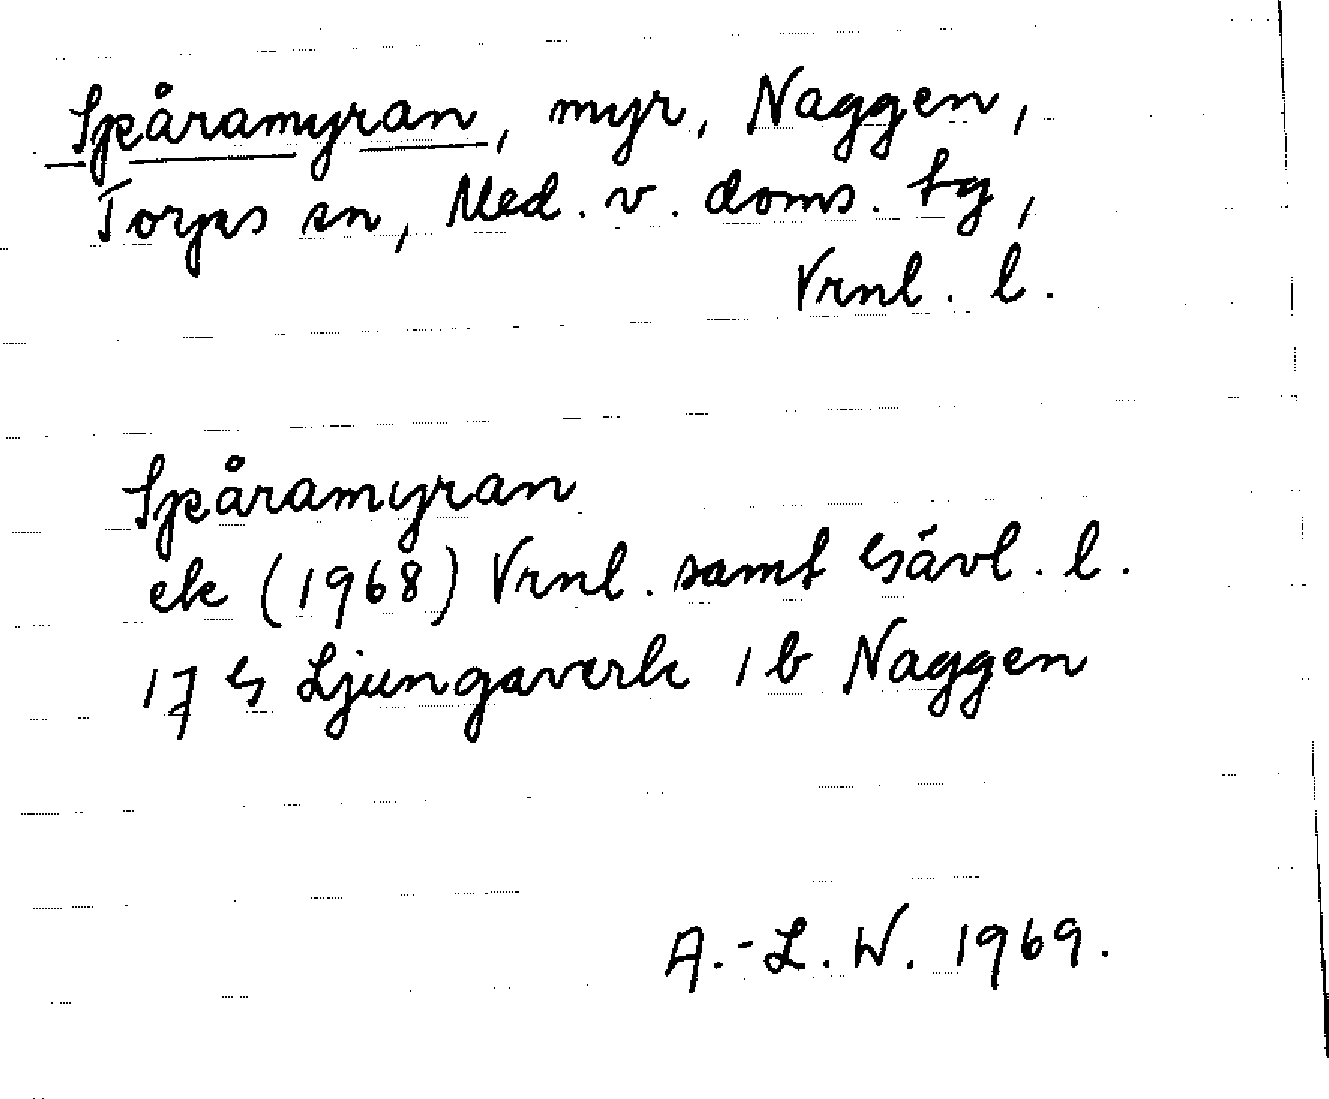 Spåramyran, myr, Naggen,
Torps sn, Med. v. doms. tg,
Vrnl. l.
Spåramyran
ek (1968) Vrnl. samt Gävl. l.
17 G Ljungaverk 1 b Naggen
A.-L. W. 1969.